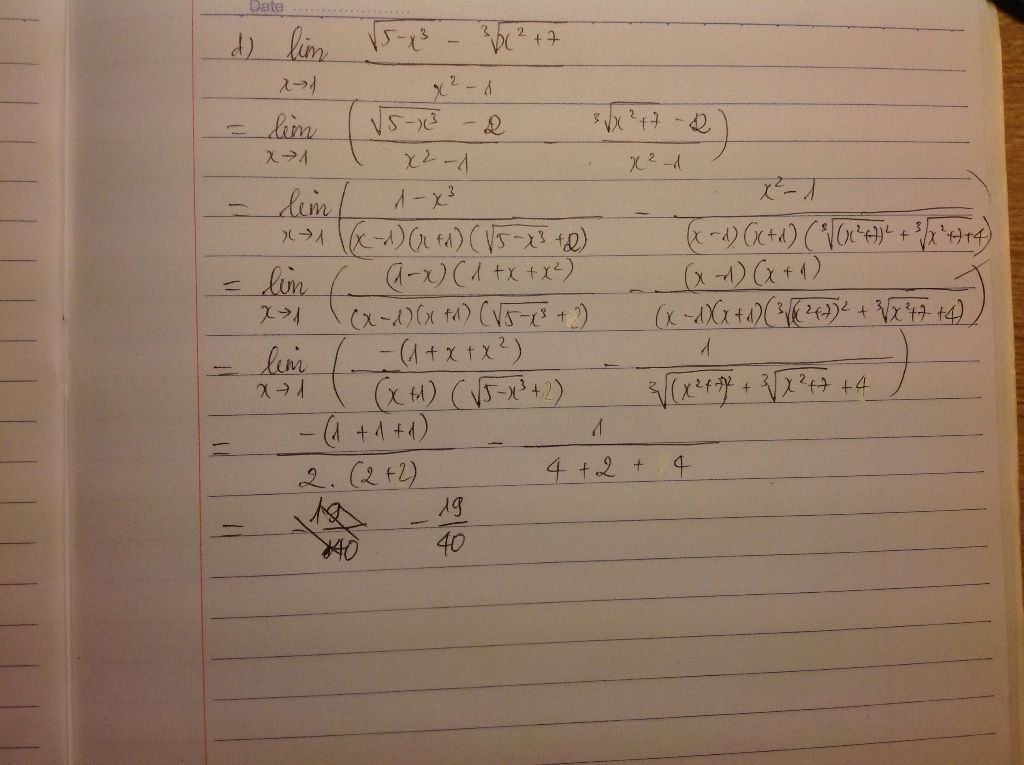 Date
d) lim_{x→1} (√(5-x³) - ³√(x²+7)) / (x² - 1)
= lim_{x→1} ( (√(5-x³) - 2) / (x² - 1) - (³√(x²+7) - 2) / (x² - 1) )
= lim_{x→1} ( (1 - x³) / ((x-1)(x+1)(√(5-x³) + 2)) - (x² - 1) / ((x-1)(x+1)(³√((x²+7)²) + ³√(x²+7) + 4)) )
= lim_{x→1} ( (1-x)(1+x+x²) / ((x-1)(x+1)(√(5-x³) + 2)) - (x-1)(x+1) / ((x-1)(x+1)(³√((x²+7)²) + ³√(x²+7) + 4)) )
= lim_{x→1} ( -(1+x+x²) / ((x+1)(√(5-x³) + 2)) - 1 / (³√((x²+7)²) + ³√(x²+7) + 4) )
= -(1+1+1) / (2.(2+2)) - 1 / (4 + 2 + 4)
= - 19/40